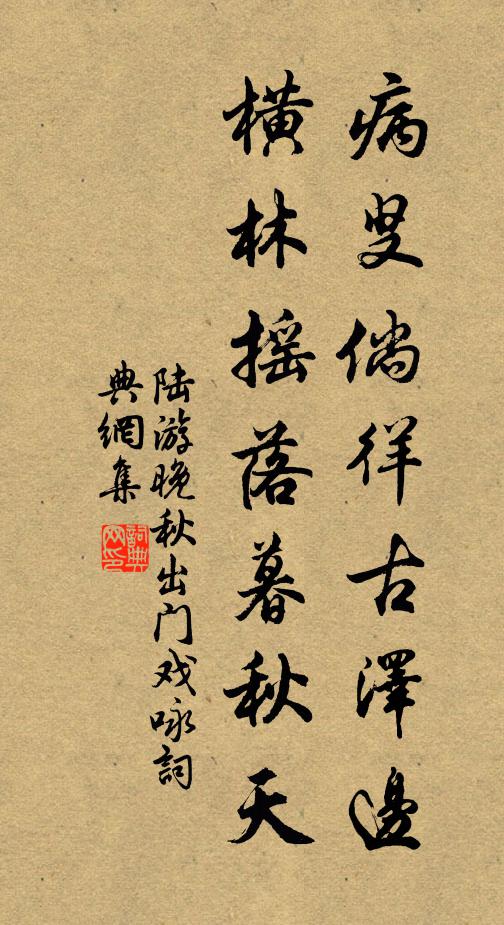 病叟倘徉古澤邊
横林摇落暮秋天
陆游晚秋出门戏咏詞
典網集
詞典网印